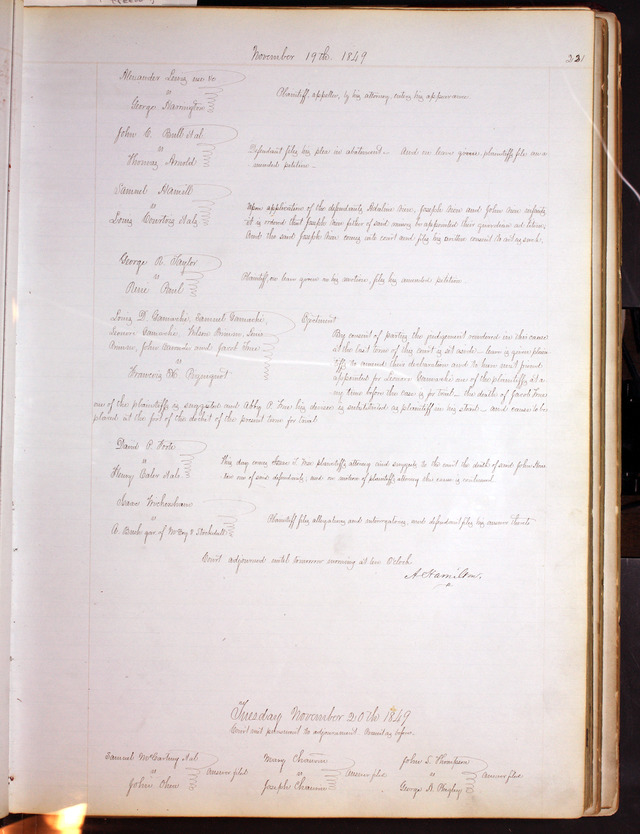 November 19th 1849
221
Alexander
vs
George Harrington
Plaintiff, appellee, by his attorney, enters his appearance
John C. Bull et al
vs
Thomas Arnold
Defendant files his plea in abatement – And on leave given, plaintiffs file an a-
mended petition –
Samuel Hamill
vs
Louis Courtois et als
Upon application of the defendants Adaline, Joseph and John infants
it is ordered that Joseph father of said minors be appointed their guardian ad litem,
And the said Joseph comes into court and files his written consent to act as such.
George R. Taylor
vs
Rene Paul
Plaintiff, on leave given on his motion, files his amended petition.
Louis D. Gamache, Samuel Gamache,
Gamache,
John and Jacob Fine
vs
Francois
Ejectment
By consent of parties the judgement rendered in this cause
at the last term of this court is set aside – leave is given plain-
tiffs to amend their declaration and to have next friend
appointed for Gamache one of the plaintiffs at a-
ny time before this case is for trial – the death of Jacob Fine
one of the plaintiffs is suggested and Abby P. Fine his devisee is substituted as plaintiff in his stead – and cause to be
placed at the foot of the docket of the present term for trial
David P.
vs
Henry et al
This day comes plaintiffs attorney and suggests to the court the death of said John
one of said defendants, and on motion of plaintiffs attorney this cause is continued.
Isaac
vs
A. Burk gar of McCoy &
Plaintiff files allegations and interrogatories, and defendant files his answer thereto
Court adjourned until tomorrow morning at ten O'clock
A. Hamilton.
Tuesday November 20th 1849
Court met pursuant to adjournment. Present as before.
Samuel McCartney et al
vs
John
Answer filed
Chauvin
vs
Joseph Chauvin
Answer filed
John S. Thompson
vs
George A.
Answer filed